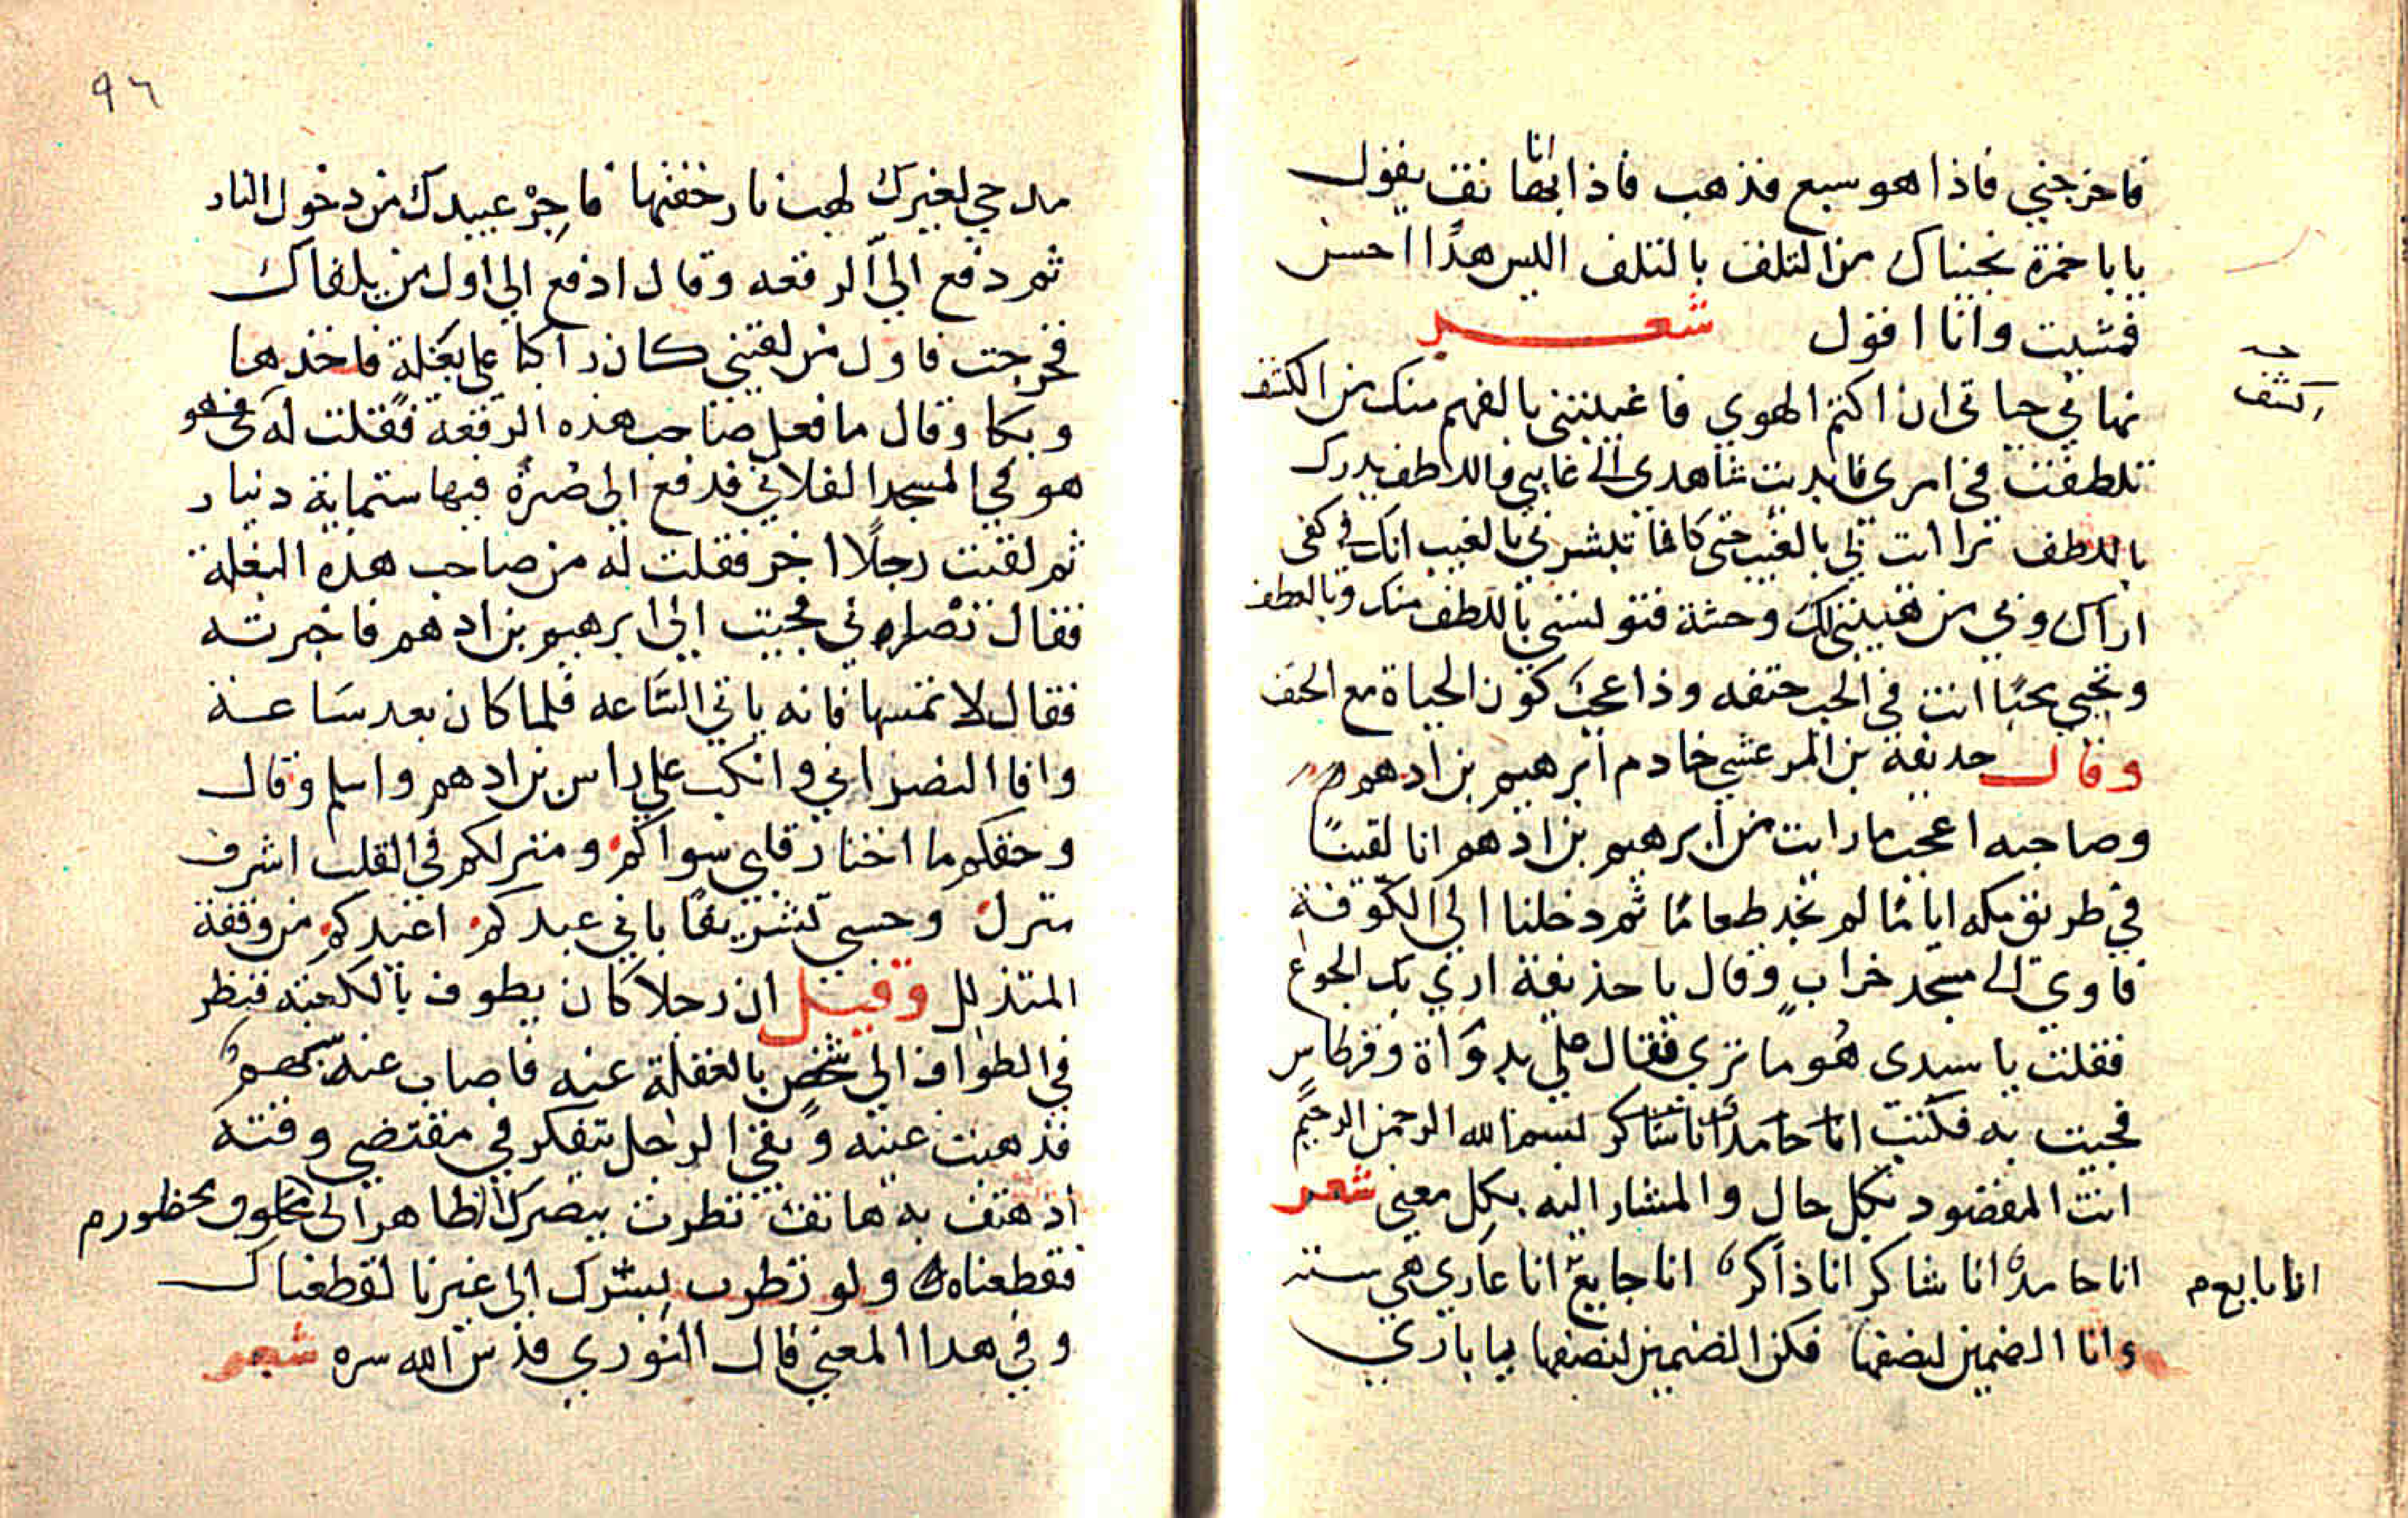 فاخرجني فاذا هو سبع فذهب فاذا انا بهاتف يقول
يا باحمزة نجيناك من التلف بالتلف اليس هذا احسن
فمشيت وانا اقول شعر
نهاني حياتي ان اكتم الهوي فاغنيتني بالفهم منك من الكشف
تلطفت في امري فابديت شاهدي الي غايبي واللطف يدرك
باللطف تراات لي بالغيب حتي كانما تبشرني بالغيب انك في كفي
اراك وبي من هيبتي لك وحشة فتونسني باللطف منك وبالعطف
وتحيي محبا انت في الحب حتفه وذا عجب كون الحياة مع الحتف
وقال حذيفة بن المرعشي خادم ابرهيم بن ادهم
وصاحبه اعجب ما رايت من ابرهيم بن ادهم انا لقينا
في طريق مكه اياما لم نجد طعاما ثم دخلنا الي الكوفة
فاوي الي مسجد خراب وقال يا حذيفة اري بك الجوع
فقلت يا سيدي هو ما تري فقال علي بدواة وقرطاس
فجيت به فكتب انا حامد انا شاكر بسم الله الرحمن الرحيم
انت المقصود بكل حال والمشار اليه بكل معني شعر
انا حامد انا شاكر انا ذاكر انا جايع انا عاري هي ستة
وانا الضمين لنصفها فكن الضمين لنصفها يا باري
كشف
انا بايع م
٩٦
مدحي لغيرك لهب نار خضتها فاجر عبيدك من دخول النار
ثم دفع الي الرقعه وقال ادفع الي اول من يلقاك
فخرجت فاول من لقيني كان راكبا علي بغلة فاخذها
وبكا وقال ما فعل صاحب هذه الرقعة فقلت له
هو في المسجد الفلاني فدفع الي صرة فيها ستماية دينار
ثم لقيت رجلا اخر فقلت له من صاحب هذه البغلة
فقال نصراني فجيت الي ابرهيم بن ادهم فاخبرته
فقال لا تمسها فانه ياتي الساعه فلما كان بعد ساعة
وافا النصراني وانكب علي راس بن ادهم واسلم وقال
وحقكم ما اختار قلبي سواكم ومنزلكم في القلب اشرف
منزل وحسبي تشريفا باني عبدكم اعيدكم من وقفة
المتذلل وقيل ان رجلا كان يطوف بالكعبه فنظر
في الطواف الي شخص بالغفلة عنه فاصاب عينه سهم
فذهبت عينه وبقي الرجل يتفكر في مقتضي وقته
اذ هتف به هاتف نظرت ببصرك الظاهر الي مخلوق محظور م
فقطعناه ولو نظرت بسرك الي غيرنا لقطعناك
وفي هذا المعني قال النوري قدس الله سره شعر